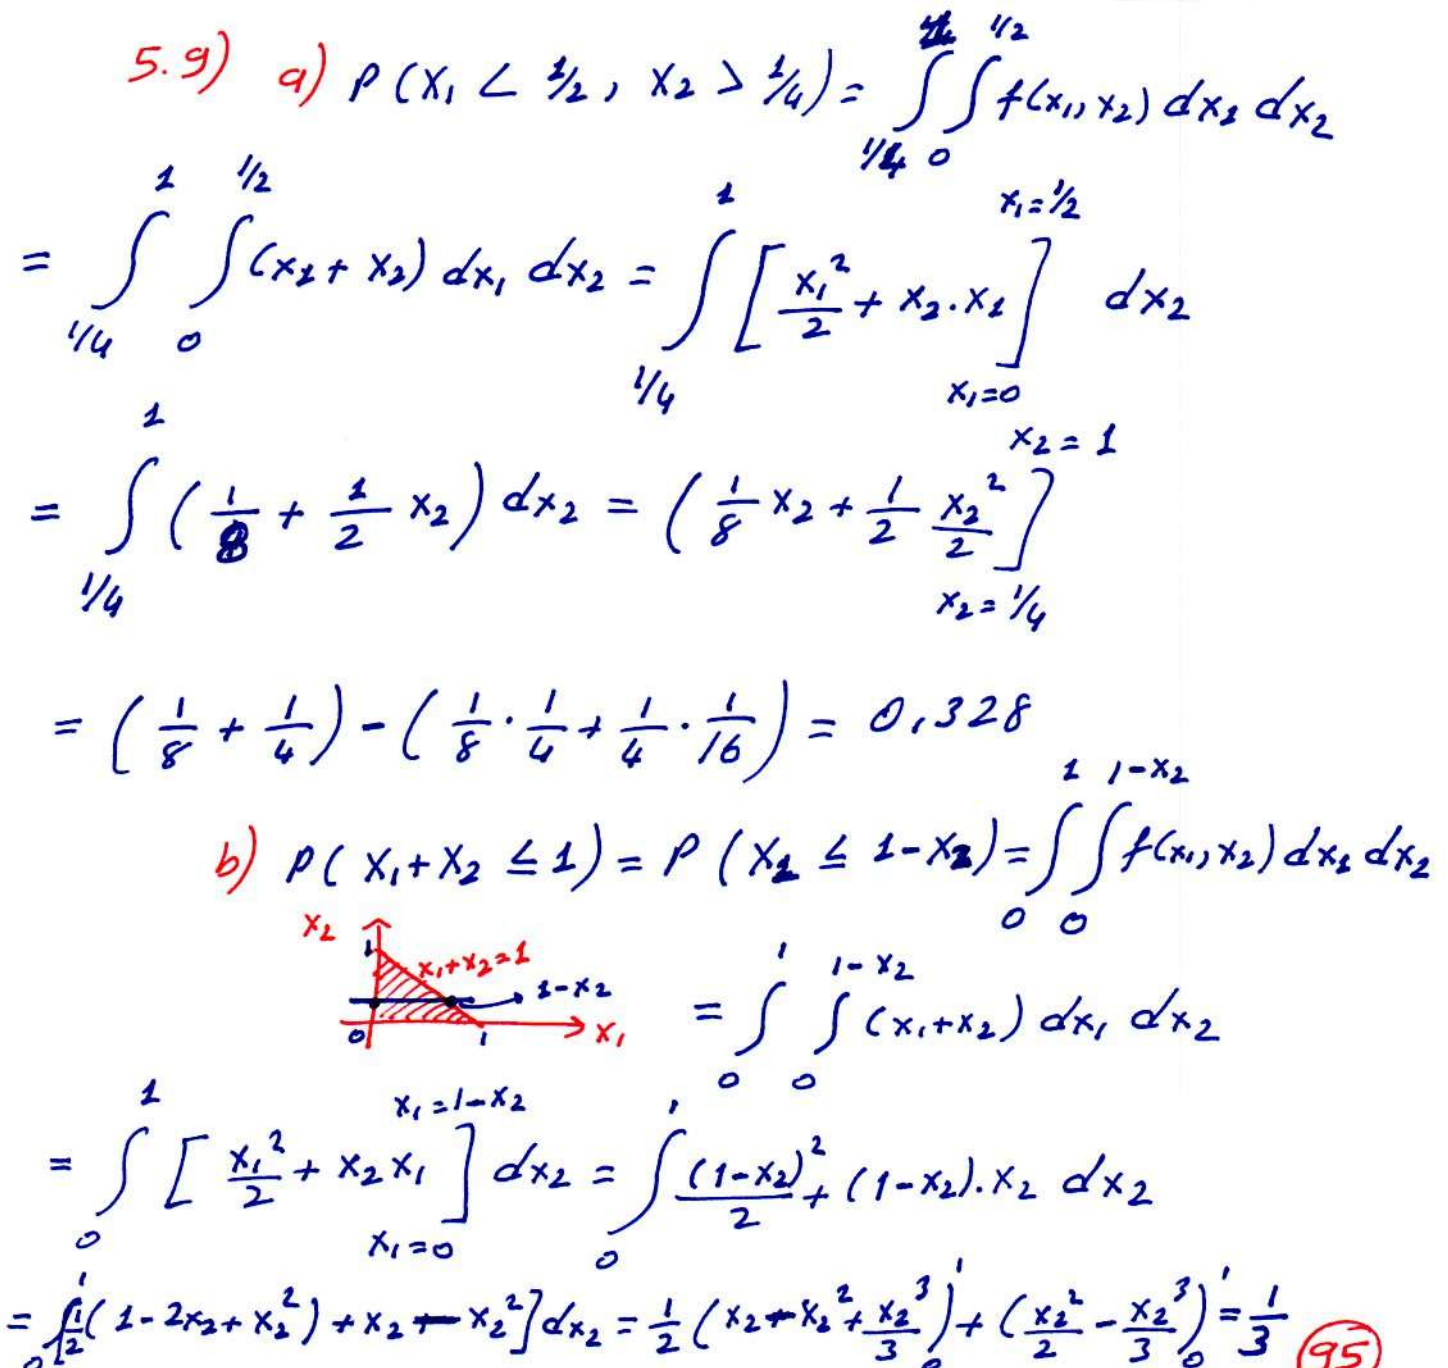 5.9) a) P(X₁ < 1/2, X₂ > 1/4) = ∫_{1/4}^{1} ∫_{0}^{1/2} f(x₁, x₂) dx₁ dx₂
= ∫_{1/4}^{1} ∫_{0}^{1/2} (x₁ + x₂) dx₁ dx₂ = ∫_{1/4}^{1} [x₁²/2 + x₂.x₁]_{x₁=0}^{x₁=1/2} dx₂
= ∫_{1/4}^{1} (1/8 + 1/2 x₂) dx₂ = (1/8 x₂ + 1/2 x₂²/2]_{x₂=1/4}^{x₂=1}
= (1/8 + 1/4) - (1/8 · 1/4 + 1/4 · 1/16) = 0,328
b) P(X₁+X₂ ≤ 1) = P(X₁ ≤ 1-X₂) = ∫_{0}^{1} ∫_{0}^{1-x₂} f(x₁, x₂) dx₁ dx₂
x₂
1
x₁+x₂=1
1-x₂
0 1 x₁
= ∫_{0}^{1} ∫_{0}^{1-x₂} (x₁+x₂) dx₁ dx₂
= ∫_{0}^{1} [x₁²/2 + x₂x₁]_{x₁=0}^{x₁=1-x₂} dx₂ = ∫_{0}^{1} (1-x₂)²/2 + (1-x₂).x₂ dx₂
= ∫_{0}^{1} [1/2 (1-2x₂+x₂²) + x₂ - x₂²] dx₂ = 1/2 (x₂ - x₂² + x₂³/3)_{0}^{1} + (x₂²/2 - x₂³/3)_{0}^{1} = 1/3
95